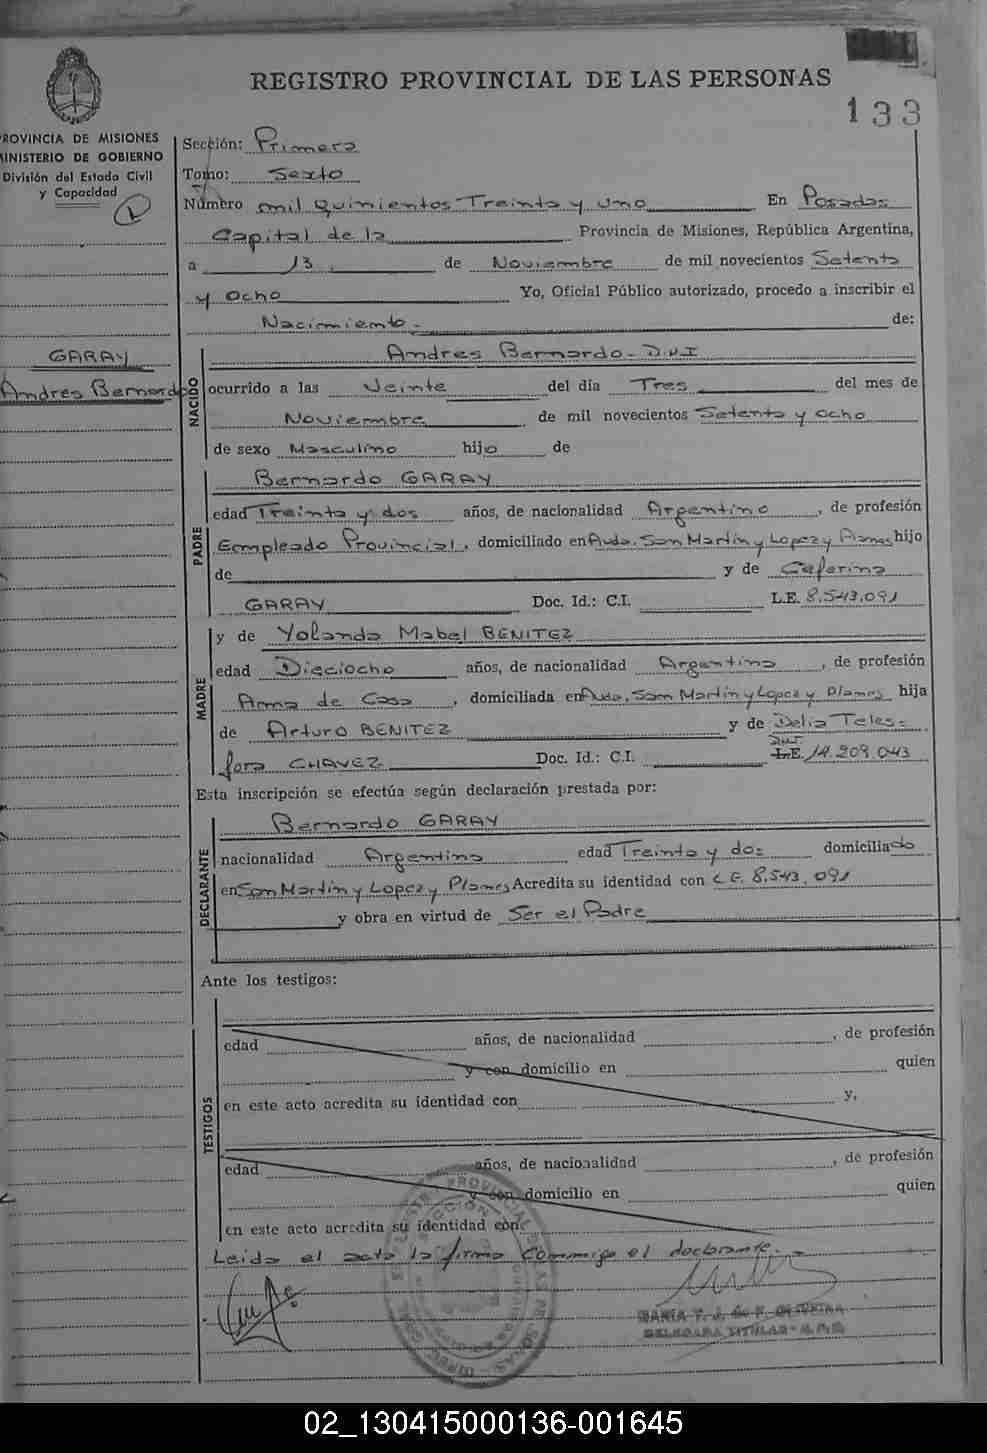 REGISTRO PROVINCIAL DE LAS PERSONAS
133
PROVINCIA DE MISIONES
MINISTERIO DE GOBIERNO
División del Estado Civil
y Capacidad
Sección: Primera
Tomo: Sexto
Número mil quinientos Treinta y uno En Posadas
Capital de la Provincia de Misiones, República Argentina,
a 13 de Noviembre de mil novecientos Setenta
y Ocho Yo, Oficial Público autorizado, procedo a inscribir el
Nacimiento.- de:
GARAY
Andres Bernardo
NACIDO
Andres Bernardo - D.N.I
ocurrido a las Veinte del día Tres del mes de
Noviembre de mil novecientos Setenta y ocho
de sexo Masculino hijo de
PADRE
Bernardo GARAY
edad Treinta y dos años, de nacionalidad Argentino, de profesión
Empleado Provincial, domiciliado en Avda. San Martin y Lopez y Planes hijo
de y de Ceferina
GARAY Doc. Id.: C.I. L.E. 8.543.091
MADRE
y de Yolanda Mabel BENITEZ
edad Dieciocho años, de nacionalidad Argentina, de profesión
Ama de Casa, domiciliada en Avda. San Martin y Lopez y Planes hija
de Arturo BENITEZ y de Delia Teles=
fora CHAVEZ Doc. Id.: C.I. L.E. 14.209.043
Esta inscripción se efectúa según declaración prestada por:
DECLARANTE
Bernardo GARAY
nacionalidad Argentino edad Treinta y dos domiciliado
en San Martin y Lopez y Planes Acredita su identidad con L.E. 8.543.091
y obra en virtud de Ser el Padre
Ante los testigos:
TESTIGOS
edad años, de nacionalidad, de profesión
y con domicilio en quien
en este acto acredita su identidad con y,
edad años, de nacionalidad, de profesión
y con domicilio en quien
en este acto acredita su identidad con
Leida el acta la firma Conmigo el declarante.-
MARIA T. J. de F. OLIVEIRA
DELEGADA TITULAR - R.P.P.
02_130415000136-001645